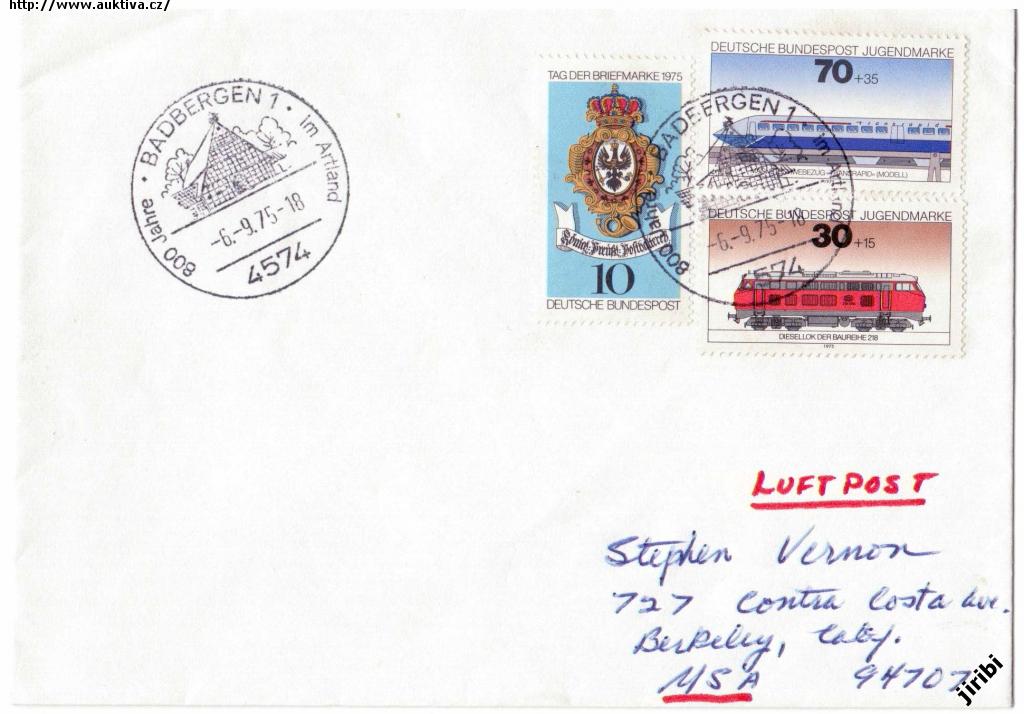 http://www.auktiva.cz/
800 Jahre · BADBERGEN 1 · im Artland
-6.-9.75-18
4574
TAG DER BRIEFMARKE 1975
10
DEUTSCHE BUNDESPOST
DEUTSCHE BUNDESPOST JUGENDMARKE
70 +35
Transrapid
(MODELL)
DEUTSCHE BUNDESPOST JUGENDMARKE
30 +15
DIESELLOK DER BAUREIHE 218
1975
800 Jahre · BADBERGEN 1 · im
-6.-9.75-18
4574
LUFTPOST
Stephen Vernon
727 Contra Costa Ave.
Berkeley, Calif.
USA 94707
jiribi